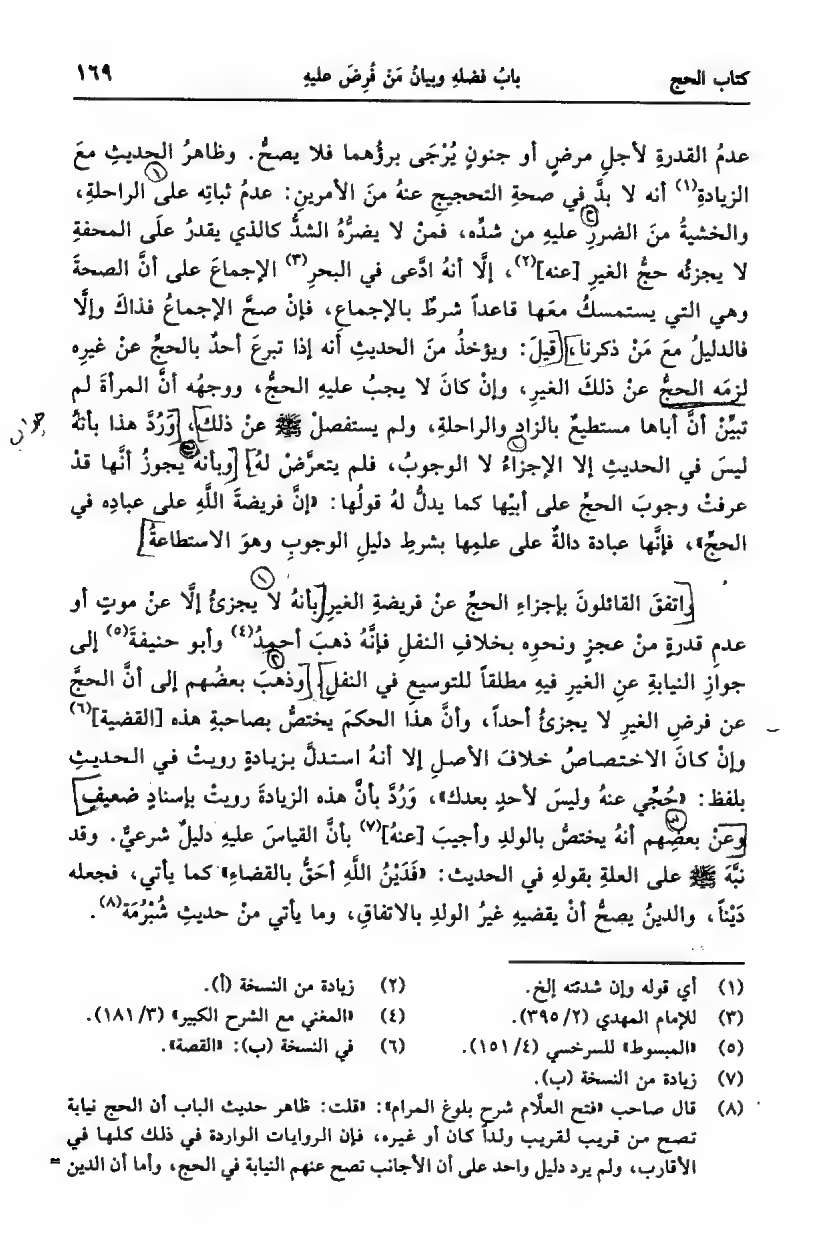 كتاب الحج باب فضلهِ وبيانُ مَنْ فُرِضَ عليهِ ١٦٩
عدمُ القدرةِ لأجلِ مرضٍ أو جنونٍ يُرْجَى برؤُهما فلا يصحُّ. وظاهرُ الحديثِ معَ
الزيادةِ(١) أنه لا بدَّ في صحةِ التحجيجِ عنهُ منَ الأمرينِ: عدمُ ثباتِه على الراحلةِ،
والخشيةُ منَ الضررِ عليهِ من شدِّه، فمنْ لا يضرُّهُ الشدُّ كالذي يقدرُ علَى المحفةِ
لا يجزئُه حجُّ الغيرِ [عنه](٢)، إلَّا أنهُ ادَّعى في البحرِ(٣) الإجماعَ على أنَّ الصحةَ
وهي التي يستمسكُ معَها قاعداً شرطٌ بالإجماعِ، فإنْ صحَّ الإجماعُ فذاكَ وإلَّا
فالدليلُ معَ مَنْ ذكرنا، قيلَ: ويؤخذُ منَ الحديثِ أنه إذا تبرعَ أحدٌ بالحجِّ عنْ غيرِه
لزمَه الحجُّ عنْ ذلكَ الغيرِ، وإنْ كانَ لا يجبُ عليهِ الحجُّ، ووجهُه أنَّ المرأةَ لم
تبيِّنْ أنَّ أباها مستطيعٌ بالزادِ والراحلةِ، ولم يستفصلْ ﷺ عنْ ذلكَ، وَرُدَّ هذا بأنهُ
ليسَ في الحديثِ إلا الإجزاءُ لا الوجوبُ، فلم يتعرَّضْ لهُ وبأنهُ يجوزُ أنَّها قدْ
عرفتْ وجوبَ الحجِّ على أبيْها كما يدلُّ لهُ قولُها: «إنَّ فريضةَ اللَّهِ على عبادِه في
الحجِّ»، فإنَّها عبادة دالةٌ على علمِها بشرطِ دليلِ الوجوبِ وهوَ الاستطاعةُ
واتفقَ القائلونَ بإجزاءِ الحجِّ عنْ فريضةِ الغيرِ بأنهُ لا يجزئُ إلَّا عنْ موتٍ أو
عدمِ قدرةٍ منْ عجزٍ ونحوِه بخلافِ النفلِ فإنَّهُ ذهبَ أحمدُ(٤) وأبو حنيفةَ(٥) إلى
جوازِ النيابةِ عنِ الغيرِ فيهِ مطلقاً للتوسيعِ في النفلِ، وذهبَ بعضُهم إلى أنَّ الحجَّ
عن فرضِ الغيرِ لا يجزئُ أحداً، وأنَّ هذا الحكمَ يختصُّ بصاحبةِ هذه [القضية](٦)
وإنْ كانَ الاختصاصُ خلافَ الأصلِ إلا أنهُ استدلَّ بزيادةٍ رويتْ في الحديثِ
بلفظ: «حُجِّي عنهُ وليسَ لأحدٍ بعدك»، وَرُدَّ بأنَّ هذه الزيادةَ رويتْ بإسنادٍ ضعيفٍ
وعنْ بعضِهم أنهُ يختصُّ بالولدِ وأجيبَ [عنهُ](٧) بأنَّ القياسَ عليهِ دليلٌ شرعيٌّ. وقد
نبَّهَ ﷺ على العلةِ بقولهِ في الحديث: «فَدَيْنُ اللَّهِ أحَقُّ بالقضاءِ» كما يأتي، فجعله
دَيْناً، والدينُ يصحُّ أنْ يقضيهِ غيرُ الولدِ بالاتفاقِ، وما يأتي منْ حديثِ شُبْرُمَة(٨).
(١) أي قوله وإن شددته إلخ. (٢) زيادة من النسخة (أ).
(٣) للإمام المهدي (٣٩٥/٢). (٤) «المغني مع الشرح الكبير» (١٨١/٣).
(٥) «المبسوط» للسرخسي (١٥١/٤). (٦) في النسخة (ب): «القصة».
(٧) زيادة من النسخة (ب).
(٨) قال صاحب «فتح العلَّام شرح بلوغ المرام»: «قلت: ظاهر حديث الباب أن الحج نيابة
تصح من قريب لقريب ولداً كان أو غيره، فإن الروايات الواردة في ذلك كلها في
الأقارب، ولم يرد دليل واحد على أن الأجانب تصح عنهم النيابة في الحج، وأما أن الدين =